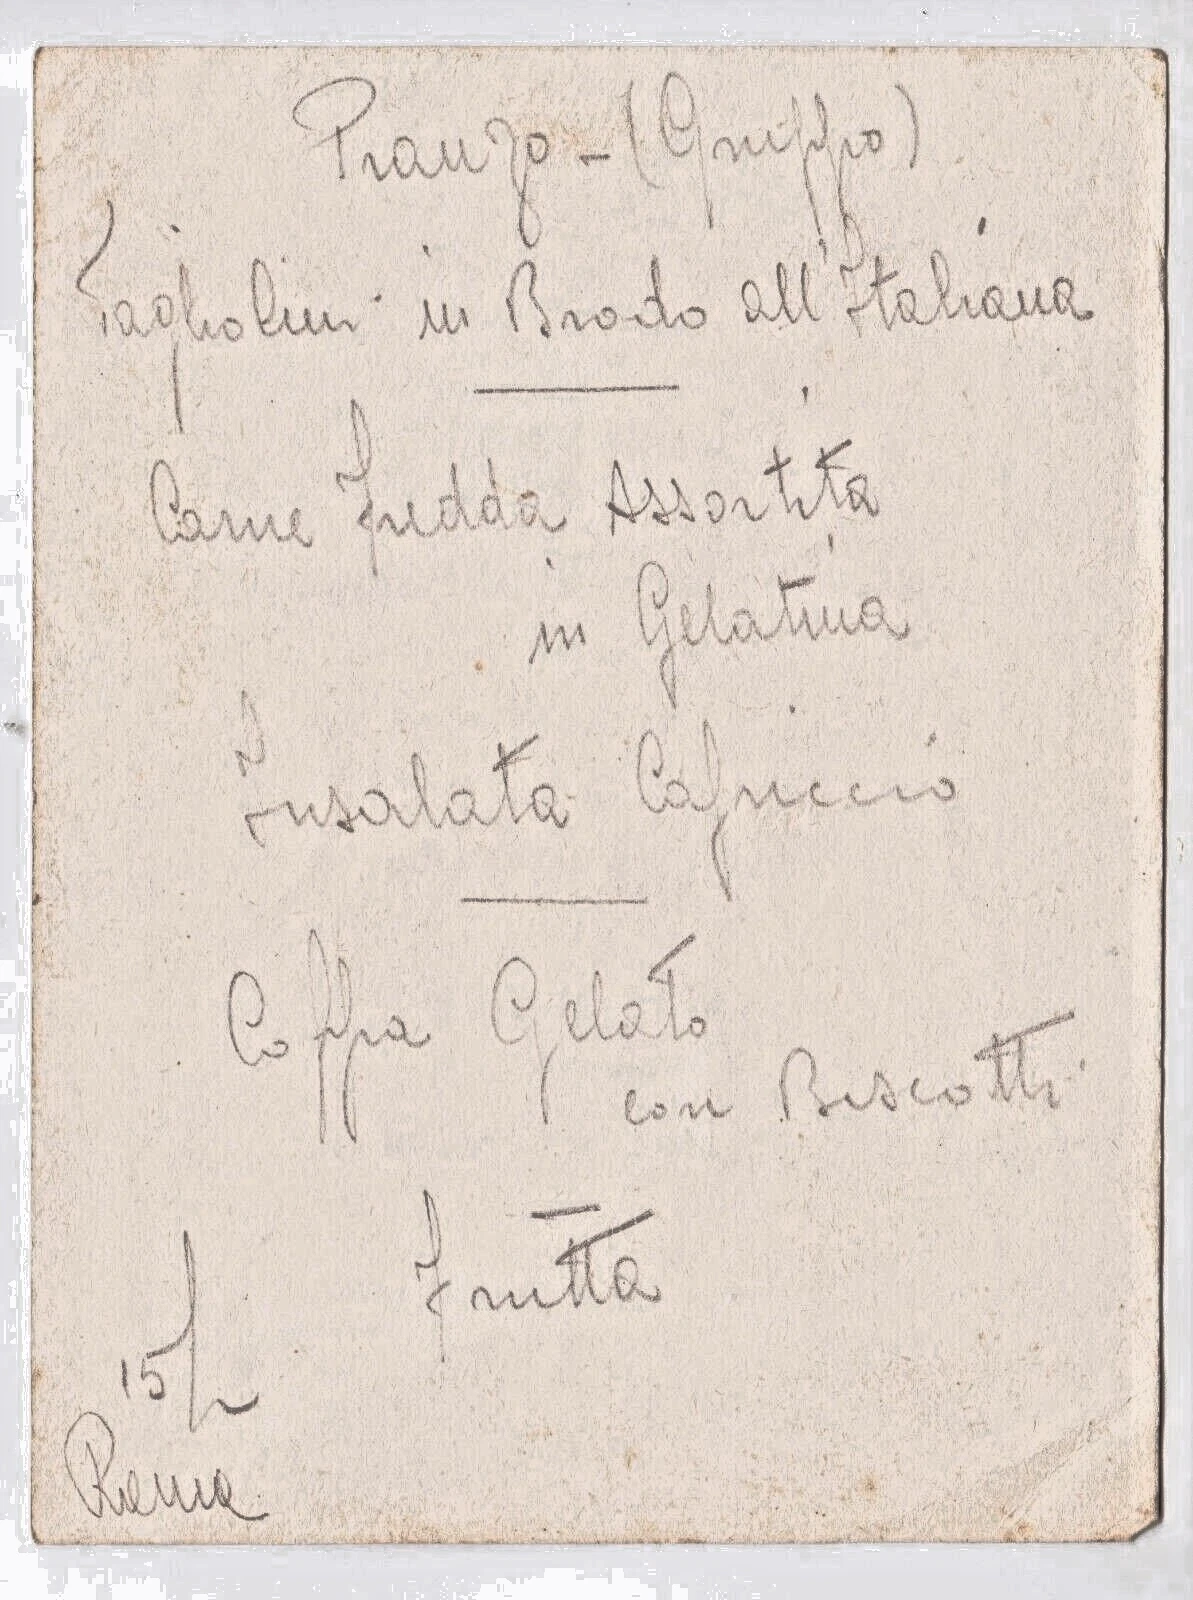 Pranzo - (Gruppo)
Tagliolini in Brodo all'Italiana
Carne fredda Assortita
in Gelatina
Insalata Capriccio
Coppa Gelato
con Biscotti
Frutta
15/
Roma